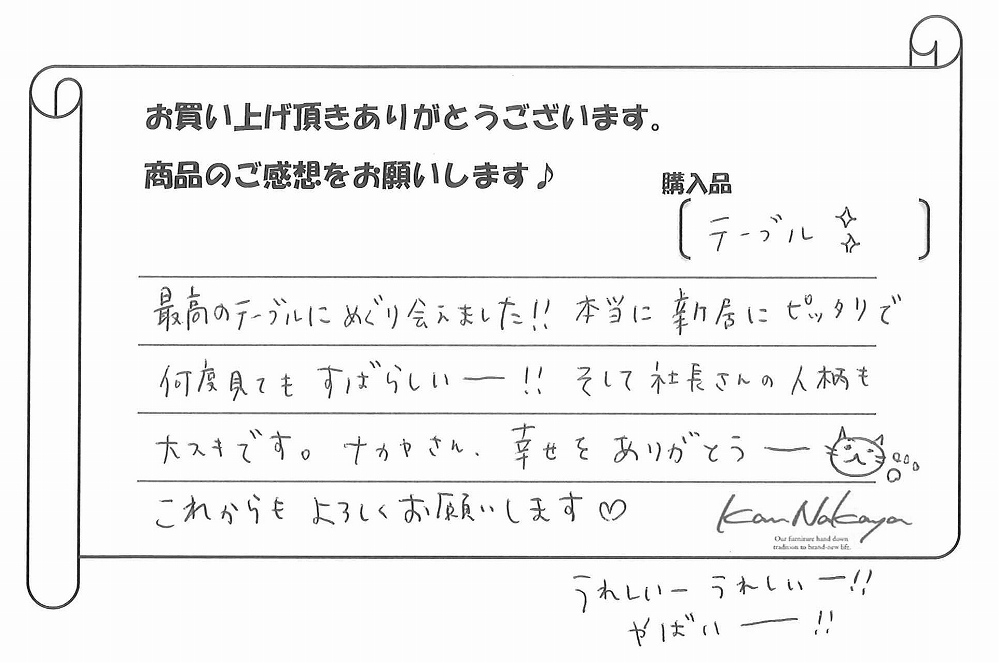 お買い上げ頂きありがとうございます。
商品のご感想をお願いします♪
購入品
テーブル
最高のテーブルにめぐり会えました!! 本当に新居にピッタリで
何度見てもすばらしいー!! そして社長さんの人柄も
大スキです。ナカヤさん、幸せをありがとうー
これからもよろしくお願いします♡
Kan Nakaya
Our furniture hand down
tradition to brand-new life.
うれしいー うれしいー!!
やばいー!!